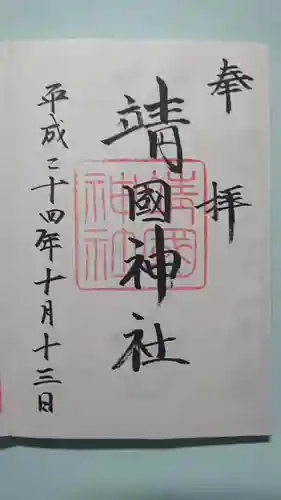 奉拝
靖國神社
靖國神社
平成二十四年十月十三日